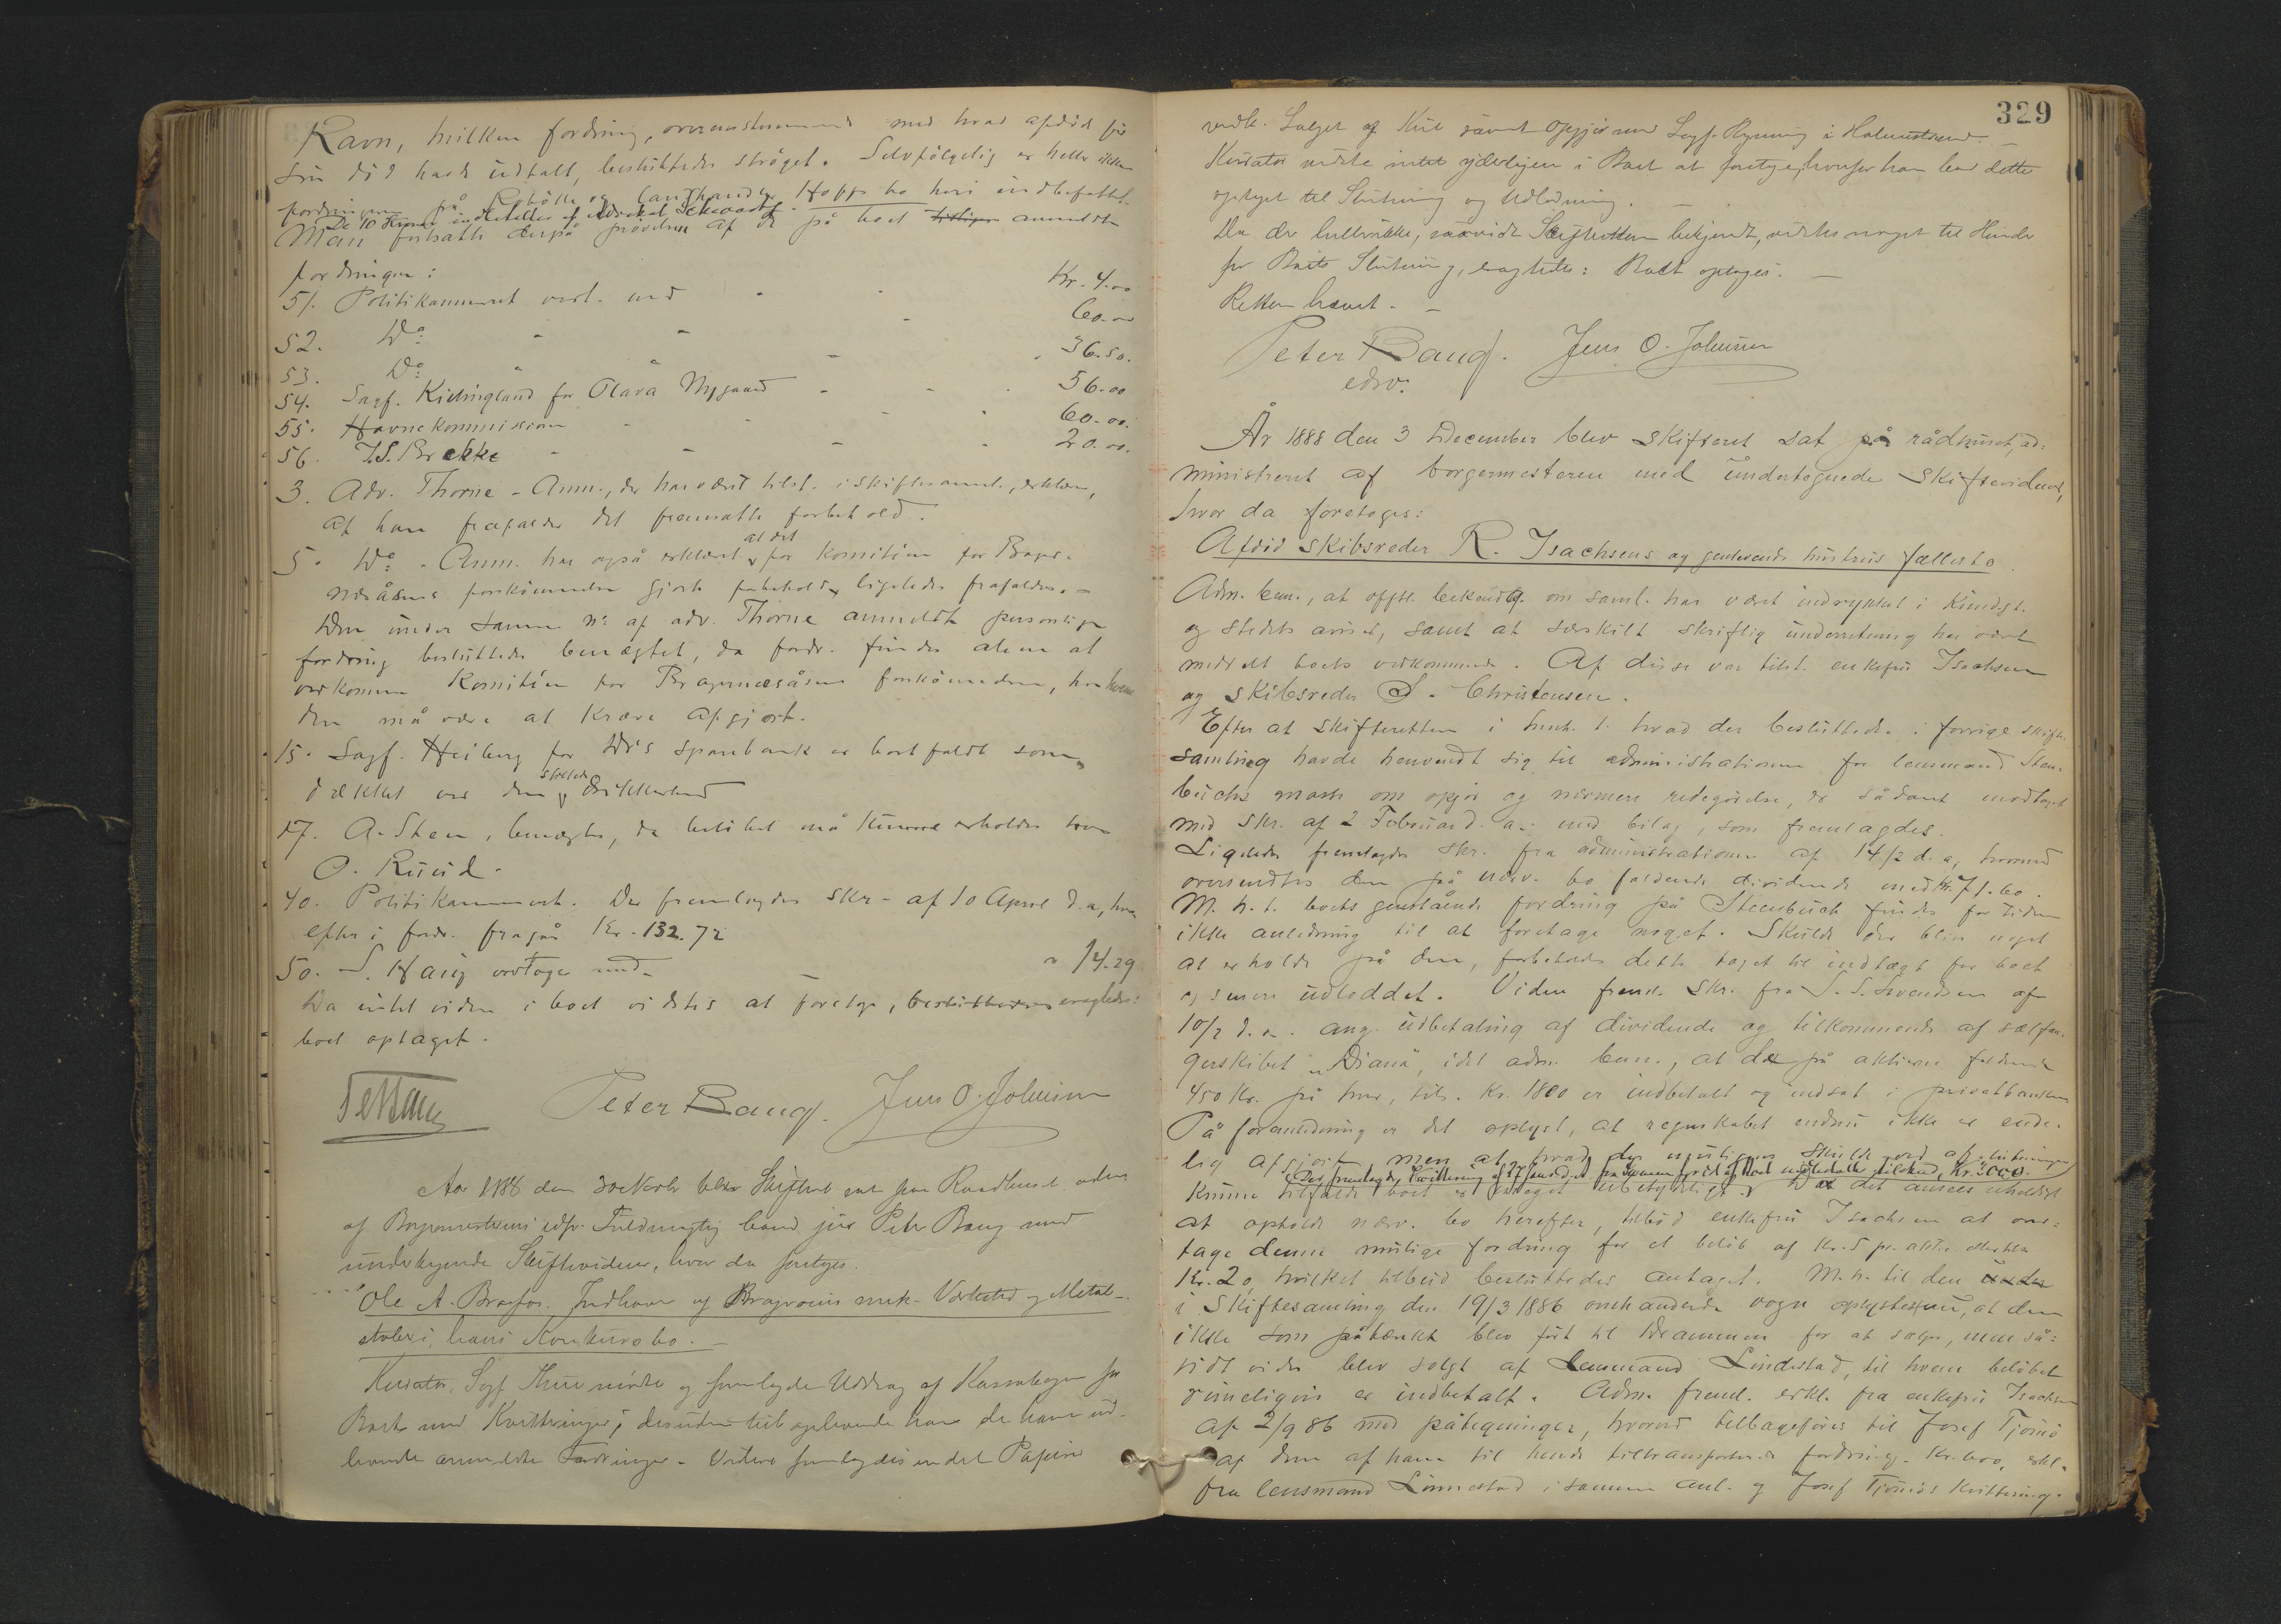 Ravn, hvilken fordring, overensstemmende med hvad afdöde för
sin död havde udtalt, besluttedes ströget. Selvfölgelig er heller ikke
fordringen på landhandler Hopps bo heri indbefattet.
De 10 Kroner indbetaltes af
Man fortsatte derpå prövelsen af de på boet tidligere anmeldte
fordringer:
51. Politikammeret vedt. med - - Kr. 4.00
52. Do: - - - 60.00
53. Do: - - - 36.50.
54. Sagf. Kielingland for Olava Nygaard - - - 56.00
55. Havnekommission - - - 60.00.
56. I. S. Brekke - - - 20.00.
3. Adv. Thorne - Anm., der har været tilst. i skiftesaml., erklærer,
at han frafalder det fremsatte forbehold.
5. Do: - Anm. har også erklæret at det for Komitéen for Brager-
nesåsens forskönnelse gjorte forbehold ligeledes frafaldes. -
Den under samme No: af adv. Thorne anmeldte personlige
fordring besluttedes benægtet, da fordr. findes alene at
vedkomme Komitéen for Bragernesåsens forskönnelse, hos hvem
den må være at kræve afgjort.
15. Sagf. Heiberg for Dr's sparebank er bortfaldt som
dækket ved den stillede sikkerhed
17. A. Steen, benægtes, da belöbet må kunne erholdes hos
O. Ruud.
40. Politikammeret. Der fremlagdes skr. af 10 April d. a., hvor
efter i fordr. fragår Kr. 132.72
50. S. Haug vedtoges med - " 14.29
Da intet videre i boet vidstes at foretage, besluttedes eragtedes:
boet optaget.
Peter Bang. Jens O. Johnsen
Aar 1888 den 30 Novbr blev Skifteret sat paa Raadhuset adm.
af Borgermesterens edsv. Fuldmægtig cand jur Peter Bang med
undertegnede Skiftevidner, hvor da foretoges.
Ole A. Braafos. Indhaver af Bragernes mek. Værksted og Metal-
stöberi, hans Konkursbo. -
Kurator, Sagf. Thue mödte og fremlagde Uddrag af Kassabogen for
Boet med Kvitteringer; desuden tilbageleverede han de ham ud-
leverede anmeldte Fordringer. Videre fremlagdes endel Papirer
329
vedk. Salget af samt Opgjör med Sagf. Rynning i Holmestrand. -
Kurator vidste intet yderligere i Boet at foretage, hvorfor han bad dette
optaget til Slutning og Udlodning. -
Da der hellerikke, saavidt Skifteretten bekjendt, vides noget til Hinder
for Boets Slutning, eragtedes: Boet optages. -
Retten hævet. -
Peter Bang. Jens O. Johnsen
edsv:
År 1888 den 3 December blev skifteret sat på rådhuset, ad-
ministreret af borgermesteren med undertegnede skiftevidner,
hvor da foretoges:
Afdöd skibsreder R. Isachsens og genlevende hustrus fællesbo.
Adm. bem., at offtl. bekendtg. om saml. har været indrykket i Kundgt.
og stedets aviser, samt at særskilt skriftlig underretning har været
meddelt boets vedkommende. Af disse var tilst. enkefru Isachsen
og skibsreder S. Christensen.
Efter at skifteretten i henh. t. hvad der besluttedes i forrige skifte-
samling havde henvendt sig til administrationen for lensmand Sten-
buchs masse om opgör og nærmere redegörelse, er sådant modtaget
med skr. af 2 Februar d. a. med bilag, som fremlagdes.
Ligeledes fremlagdes skr. fra administrationen af 14/2 d. a., hvormed
oversendtes den på nærv. bo faldende dividende med Kr. 71.60.
M. h. t. boets genstående fordring på Steenbuch findes for tiden
ikke anledning til at foretage noget. Skulde der blive noget
at erholde på den, forbeholdes dette taget til indtægt for boet
og senere udloddet. Viden freml. skr. fra S. S. Svendsen af
10/2 d. a. ang. udbetaling af dividende og tilkommende af sælfan-
gerskibet "Diana", idet adm. bem., at de på aktierne faldende
450 Kr. på hver, tils. Kr. 1800 er indbetalt og indsat i privatbanken
På foranledning er det oplyst, at regnskabet endnu ikke er ende-
lig afgjort men at hvad der muligens skulde ved afslutningen
Der fremlagdes kvittering af 17 Kr. 2000.
kunne tilfalde boet er noget ubetydeligt. Da det ansees uheldigt
at opholde nærv. bo herefter, tilböd enkefru Isachsen at over-
tage denne mulige fordring for et belöb af Kr. 5 pr. aktie eller tils.
Kr. 20, hvilket tilbud besluttedes antaget. M. h. til den
i skiftesamling den 19/3 1886 omhandlede vogn oplystes nu, at den
ikke som påtænkt blev fört til Drammen for at sælges, men så-
vidt vides blev solgt af Lensmand Lindestad, til hvem belöbet
rimeligvis er indbetalt. Adm. freml. erkl. fra enkefru Isachsen
af 2/9 86 med påtegninger, hvorved tilbageföres til Josef Tjömö
af den af ham til hende tiltransporterede fordring. Kr. 600, erkl.
fra lensmand Linnestad i samme anl. og Josef Tjömös kvittering.